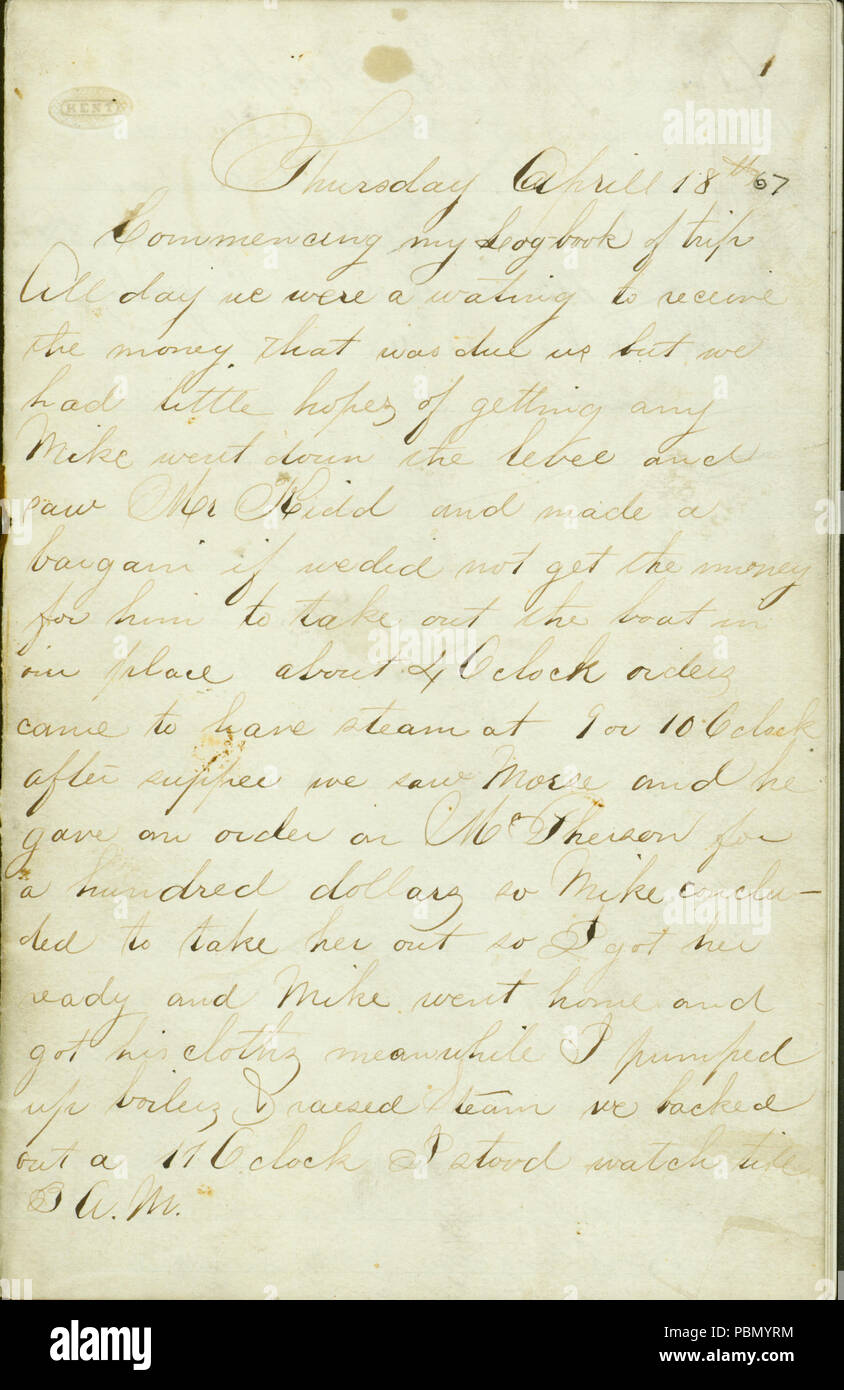 1
KENT
Thursday Aprill 18th 67
Commencing my Logbook of trip
All day we were a wating to receive
the money that was due us but we
had little hopez of getting any
Mike went down the levee and
saw Mr Kidd and made a
bargain if we did not get the money
for him to take out the boat in
our place about 4 O clock orderz
came to have steam at 9 or 10 O clock
after supper we saw Morse and he
gave an order on McPherson for
a hundred dollarz so Mike conclu-
ded to take her out so I got her
ready and Mike went home and
got his clothz meanwhile I pumped
up boilerz & raised steam we backed
out a 11 O clock I stood watch till
A.M.
alamy
Image ID: PBMYRM
www.alamy.com